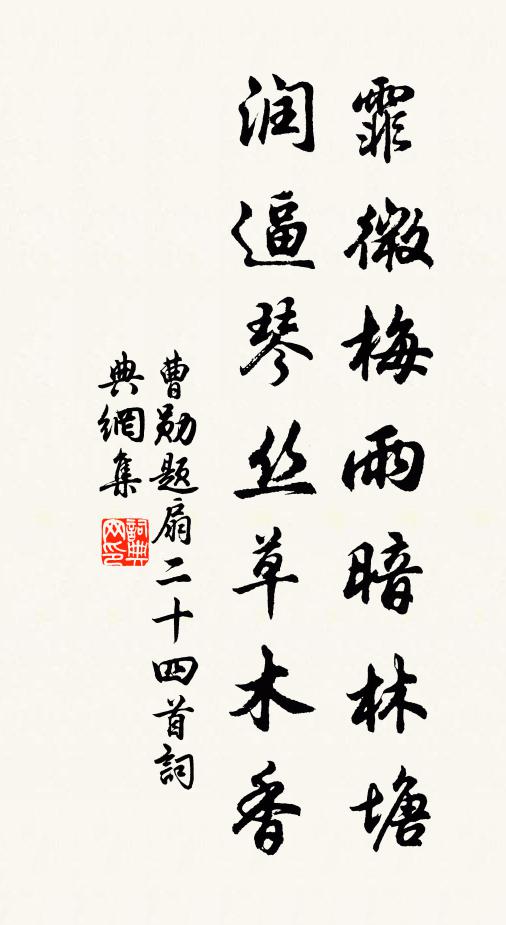 霏微梅雨暗林塘
润逼琴丝草木香
曹勋题扇二十四首詞
典網集
詞典网印